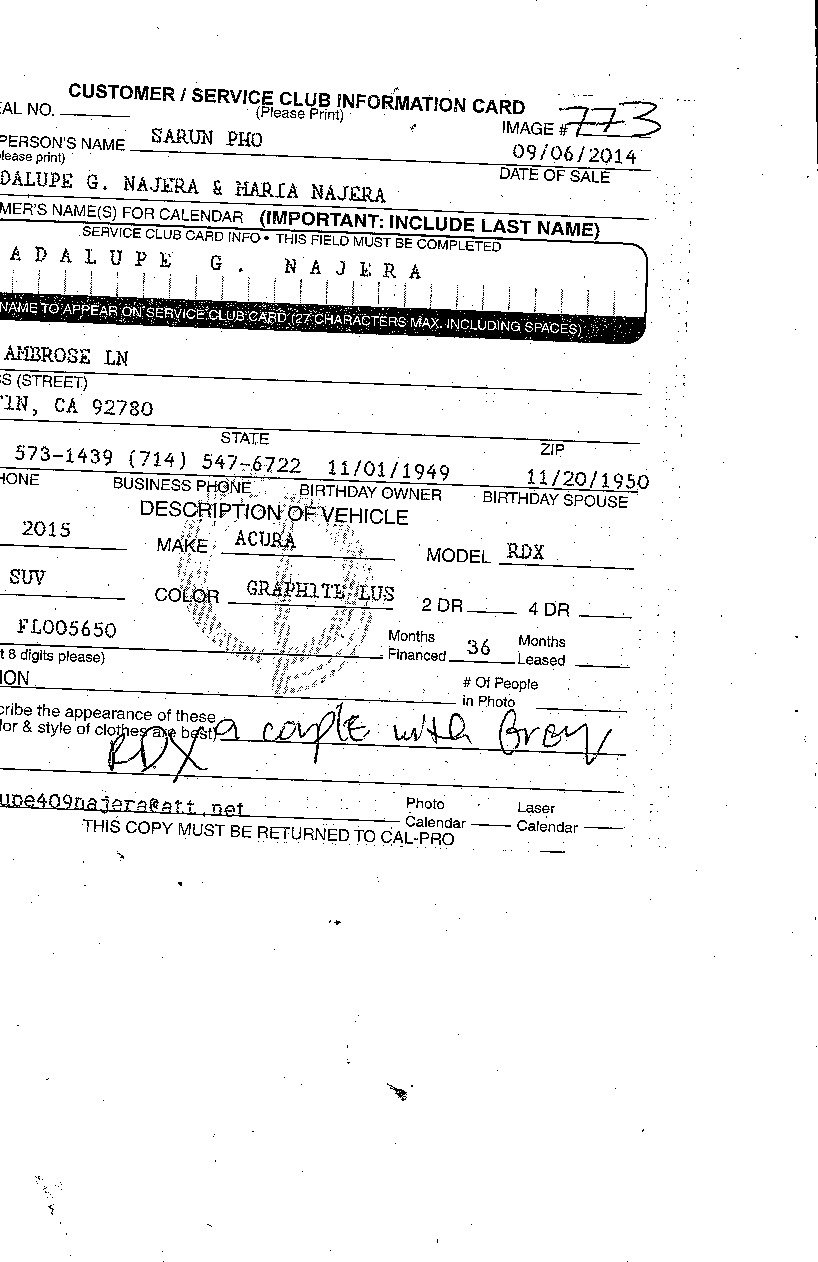 CUSTOMER / SERVICE CLUB INFORMATION CARD
(Please Print)
EAL NO.
IMAGE # 773
PERSON'S NAME SARUN PHO 09/06/2014
lease print)
DATE OF SALE
DALUPE G. NAJERA & MARIA NAJERA
MER'S NAME(S) FOR CALENDAR (IMPORTANT: INCLUDE LAST NAME)
SERVICE CLUB CARD INFO • THIS FIELD MUST BE COMPLETED
A D A L U P E G . N A J E R A
NAME TO APPEAR ON SERVICE CLUB CARD (27 CHARACTERS MAX. INCLUDING SPACES)
AMBROSE LN
S (STREET)
TIN, CA 92780
STATE ZIP
573-1439 (714) 547-6722 11/01/1949 11/20/1950
HONE BUSINESS PHONE BIRTHDAY OWNER BIRTHDAY SPOUSE
DESCRIPTION OF VEHICLE
2015 MAKE ACURA MODEL RDX
SUV COLOR GRAPHITE LUS 2 DR 4 DR
FL005650 Months Financed 36 Months Leased
t 8 digits please)
ION # Of People in Photo
cribe the appearance of these
lor & style of clothes are best) a couple with Grey
RDX
upe409najera@att.net
Photo Calendar Laser Calendar
THIS COPY MUST BE RETURNED TO CAL-PRO